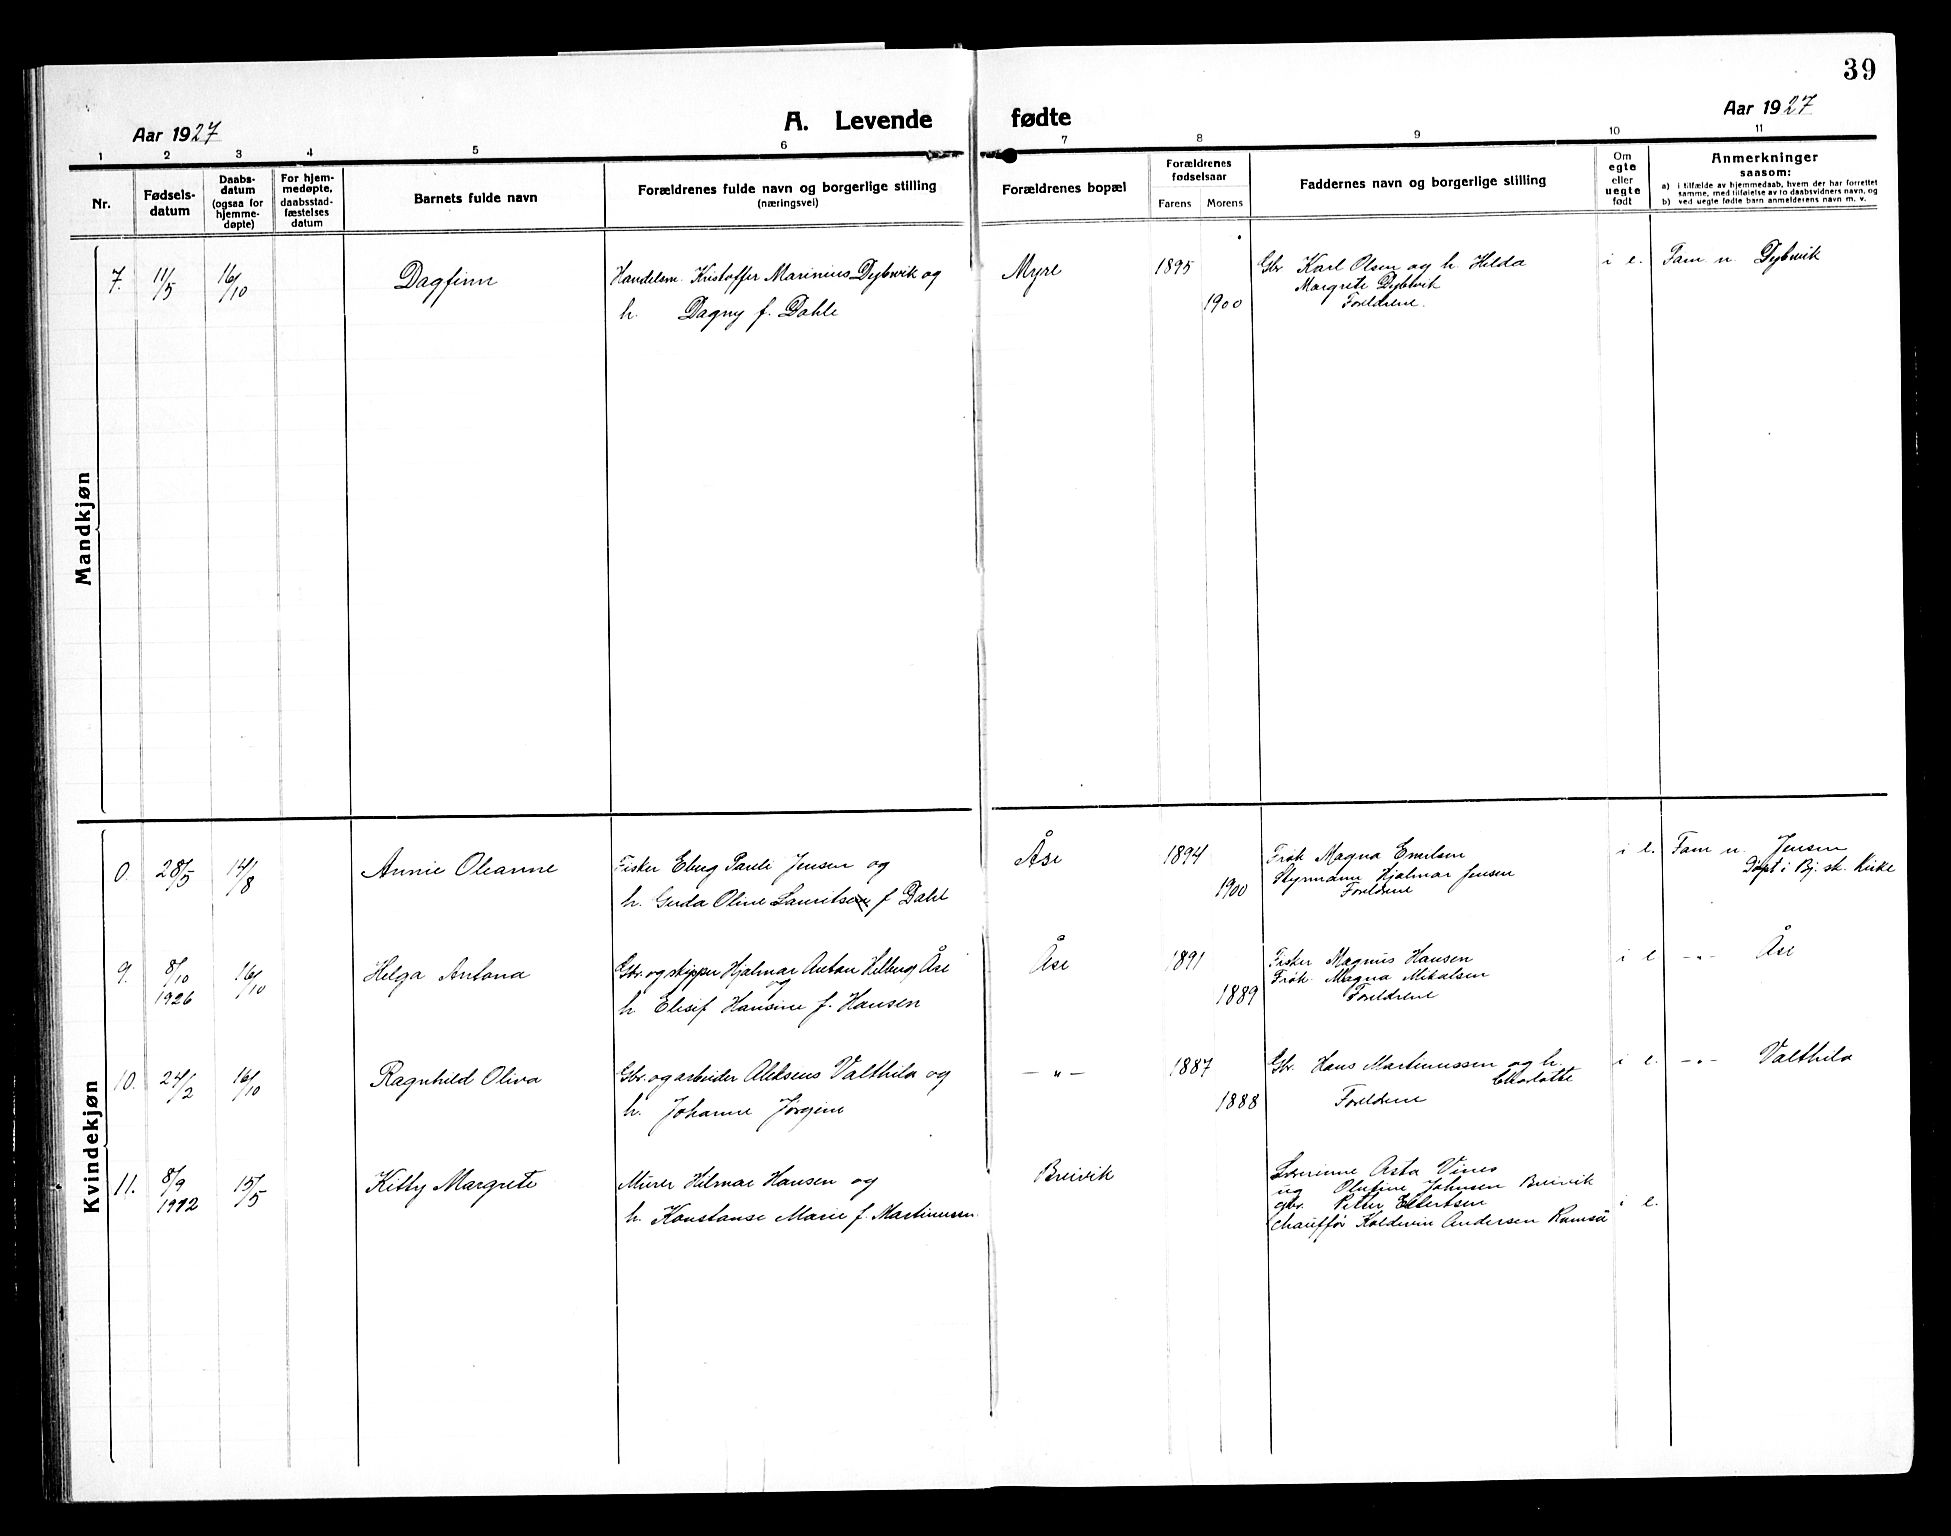 39
Aar 1927
A. Levende fødte
Aar 1927
1 2 3 4 5 6 7 8 9 10 11
Nr.
Fødsels-
datum
Daabs-
datum
(ogsaa for
hjemme-
døpte)
For hjem-
medøpte,
daabsstad-
fæstelses
datum
Barnets fulde navn
Forældrenes fulde navn og borgerlige stilling
(næringsvei)
Forældrenes bopæl
Forældrenes
fødselsaar
Farens Morens
Faddernes navn og borgerlige stilling
Om
egte
eller
uegte
født
Anmerkninger
saasom:
a) i tilfælde av hjemmedaab, hvem der har forrettet
samme, med tilføielse av to daabsvidners navn, og
b) ved uegte fødte barn anmelderens navn m. v.
Mandkjøn
7. 11/5 16/10 Dagfinn
Handelsm. Kristoffer Marinius Dybvik og
h. Dagny f. Dahle
Myre
1895
1900
Gbr Karl Olsen og h. Hilda
Margrete Dybvik
Foreldrene.
i e.
Fam n. Dybvik
Kvindekjøn
0. 28/5 14/8 Annie Oleanne
Fisker Eberg Paule Jensen og
h. Gerda Oline Lauritsen f Dahl
Åse
1894
1900
Frøk Magna Emelsen
Styrmann Hjalmar Jensen
Foreldrene
i e.
Fam n. Jensen
Døpt i Bj. st. Kirke
9. 8/10 16/10 Helga Antona
1926
Gbr. og skipper Hjalmar Anton Helberg Åse
og
h Elesif Hansine f. Hansen
Åse
1891
1889
Fisker Magnus Hansen
Frøk. Magna Mikalsen
Foreldrene
i e
-"- Åse
10. 24/2 16/10 Ragnhild Oliva
Gbr. og arbeider Aleksens Valthila og
h. Johanne Jørgine
-"-
1887
1888
Gbr. Hans Martinussen og h
Charlotte
Foreldrene
i e.
-"- Valthila
11. 8/9 15/5 Kitty Margrete
1922
Murer Hilmar Hansen og
h. Konstanse Marie f. Martinussen
Breivik
Lærerinne Asta Vines
ug Olufine Johnsen Breivik
gbr. Petter Ellertsen
chauffør Koldevin Andersen Ramså
i e.